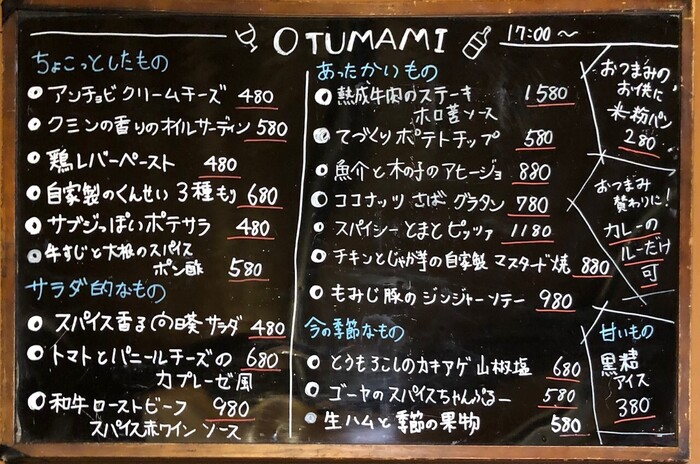 OTUMAMI
17:00〜
ちょこっとしたもの
アンチョビクリームチーズ 480
クミンの香りのオイルサーディン 580
鶏レバーペースト 480
自家製のくんせい 3種もり 680
サブジっぽいポテサラ 480
牛すじと大根のスパイス
ポン酢 580
サラダ的なもの
スパイス香る向日葵サラダ 480
トマトとパニールチーズの 680
カプレーゼ風
和牛ローストビーフ 980
スパイス赤ワインソース
あったかいもの
熟成牛肉のステーキ 1580
ホロ苦ソース
てづくりポテトチップ 580
魚介と木の子のアヒージョ 880
ココナッツさばグラタン 780
スパイシーとまとピッツァ 1180
チキンとじゃが芋の自家製マスタード焼 880
もみじ豚のジンジャーソテー 980
今の季節なもの
とうもろこしのカキアゲ 山椒塩 680
ゴーヤのスパイスちゃんぷるー 580
生ハムと季節の果物 580
おつまみの
お供に
米粉パン
280
おつまみ
替わりに!
カレーの
ルーだけ
可
甘いもの
黒糖
アイス
380